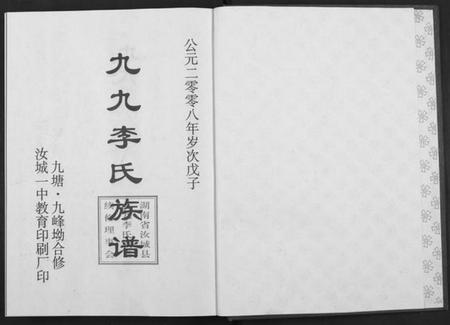 公元二零零八年岁次戊子
九九李氏族谱
湖南省汝城县
李氏
续修理事会
九塘·九峰坳合修
汝城一中教育印刷厂印